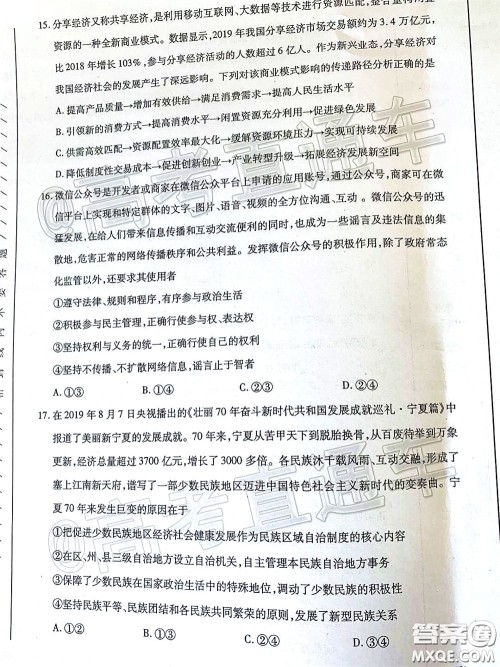 15. 分享经济又称共享经济,是利用移动互联网、大数据等技术进行资源匹配,整合重构闲置
资源的一种全新商业模式。数据显示,2019 年我国分享经济市场交易额约为 3.4 万亿元,
比 2018 年增长 103%,参与分享经济活动的人数超过 6 亿人。作为新业态,分享经济对
我国经济社会的发展产生了深远影响。下列对该商业模式影响的传递路径分析正确的是
A. 提高产品质量→增加有效供给→满足消费需求→提高人民生活水平
B. 引领新的消费方式→提高消费水平→闲置资源充分利用→促进绿色发展
C. 供需高效匹配→资源配置效率最大化→缓解资源环境压力→实现可持续发展
D. 降低制度性交易成本→促进创新创业→产业转型升级→拓展经济发展新空间
16. 微信公众号是开发者或商家在微信公众平台上申请的应用账号,通过公众号,商家可在微
信平台上实现和特定群体的文字、图片、语音、视频的全方位沟通、互动。微信公众号的迅
猛发展,在给人们带来信息传播和互动交流便利的同时,也成为一些谣言及违法信息的集
散地,危害正常的网络传播秩序和公共利益。发挥微信公众号的积极作用,除了政府常态
化监管以外,还要求其使用者
①遵守法律、规则和程序,有序参与政治生活
②积极参与民主管理,正确行使参与权、表达权
③坚持权利与义务的统一,正确行使自己的权利
④坚持不传播、不扩散网络信息,谣言止于智者
A.①③ B.①④ C.②③ D.②④
17. 在 2019 年 8 月 7 日央视播出的《壮丽 70 年奋斗新时代共和国发展成就巡礼·宁夏篇》中
报道了美丽新宁夏的发展成就。70 年来,宁夏从苦甲天下到脱胎换骨,从百废待举到万象
更新,经济总量超过 3700 亿元,增长了 3000 多倍。各民族沐干载风雨、互动交融,形成了
塞上江南新天府,谱写了一部少数民族地区迈进中国特色社会主义新时代的变奏曲。宁
夏 70 年来发生巨变的原因在于
①把促进少数民族地区经济社会健康发展作为民族区域自治制度的核心内容
②在区、州、县三级自治地方设立自治机关,自主管理本民族自治地方事务
③保障了少数民族在国家政治生活中的特殊地位,调动了少数民族的积极性
④坚持民族平等、民族团结和各民族共同繁荣的原则,发展了新型民族关系
A.①② B.①④ C.②③ D.③④
@高考直通车
@高考直通车
答案圈
MXQE.COM